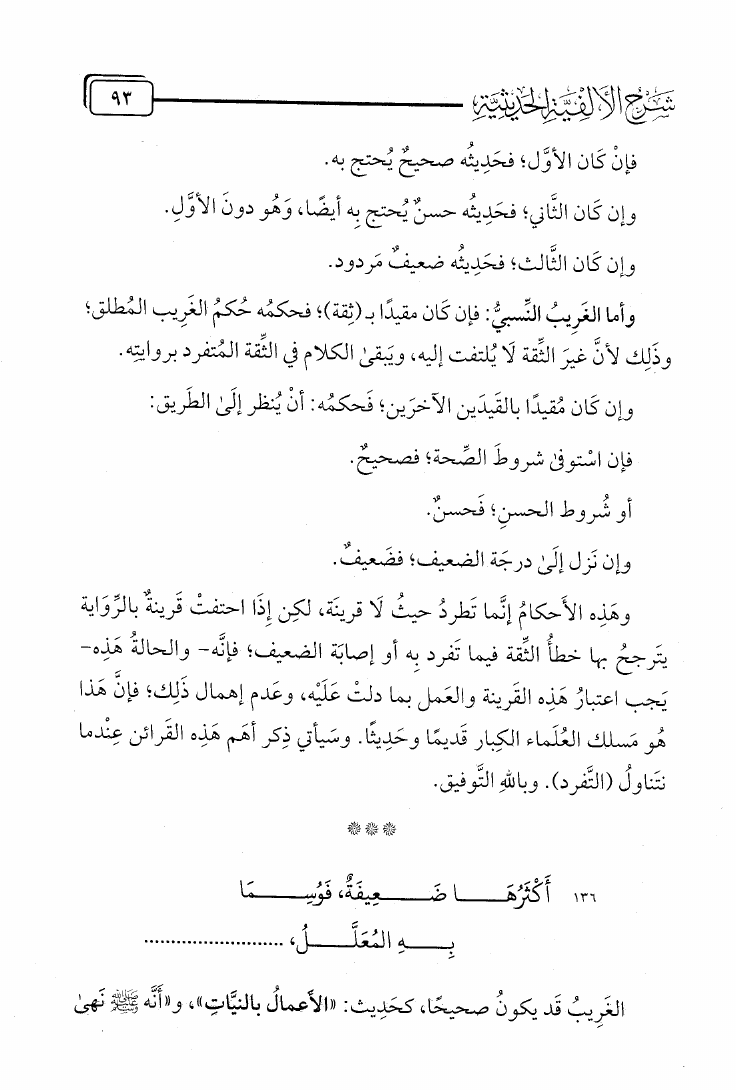 شَرح الألفِيَّةِ الحَدِيثِيَّةِ
٩٣
فإنْ كَان الأوَّل؛ فحَدِيثُه صحيحٌ يُحتج به.
وإن كَان الثَّاني؛ فحَدِيثُه حسنٌ يُحتج بِه أيضًا، وَهُو دونَ الأوَّلِ.
وإن كَان الثَّالث؛ فحَدِيثُه ضعيفٌ مَردود.
وأما الغَرِيبُ النِّسبيُّ: فإن كَان مقيدًا بـ(ثِقة)؛ فحكمُه حُكمُ الغَرِيب المُطلق؛
وذَلِك لأنَّ غيرَ الثِّقة لَا يُلتفت إليه، ويَبقىٰ الكلام فِي الثِّقة المُتفرد بروايتِه.
وإن كَان مُقيدًا بالقَيدَين الآخرَين؛ فَحكمُه: أنْ يُنظر إلَىٰ الطَريق:
فإن اسْتوفىٰ شروطَ الصِّحة؛ فصحيحٌ.
أو شُروط الحسنِ؛ فَحسنٌ.
وإن نَزل إلَىٰ درجَة الضعيف؛ فضَعيفٌ.
وهَذِه الأحكامُ إنَّما تَطردُ حيثُ لَا قرينَة، لكِن إِذَا احتفتْ قرينةٌ بالرِّوَاية
يتَرجحُ بها خطأُ الثِّقة فيما تَفرد بِه أو إصابَة الضعيف؛ فإنَّه- والحالةُ هَذِه-
يَجب اعتبارُ هَذِه القَرينة والعَمل بما دلتْ عَلَيْه، وعَدم إهمال ذَلِك؛ فإنَّ هَذا
هُو مَسلك العُلَماء الكِبار قَديمًا وحَديثًا. وسَيأتي ذِكر أهَم هَذِه القَرائن عِنْدما
نتَناولُ (التَّفرد). وباللهِ التَّوفيق.
***
١٣٦ أَكْثَرُهَـــا ضَــعِيفَةٌ، فَوُسِــمَا
بِــهِ المُعَلَّــلُ، .........................
الغَرِيبُ قَد يكونُ صحيحًا، كحَدِيث: «الأَعمالُ بالنيَّاتِ»، و«أنَّه ﷺ نَهىٰ